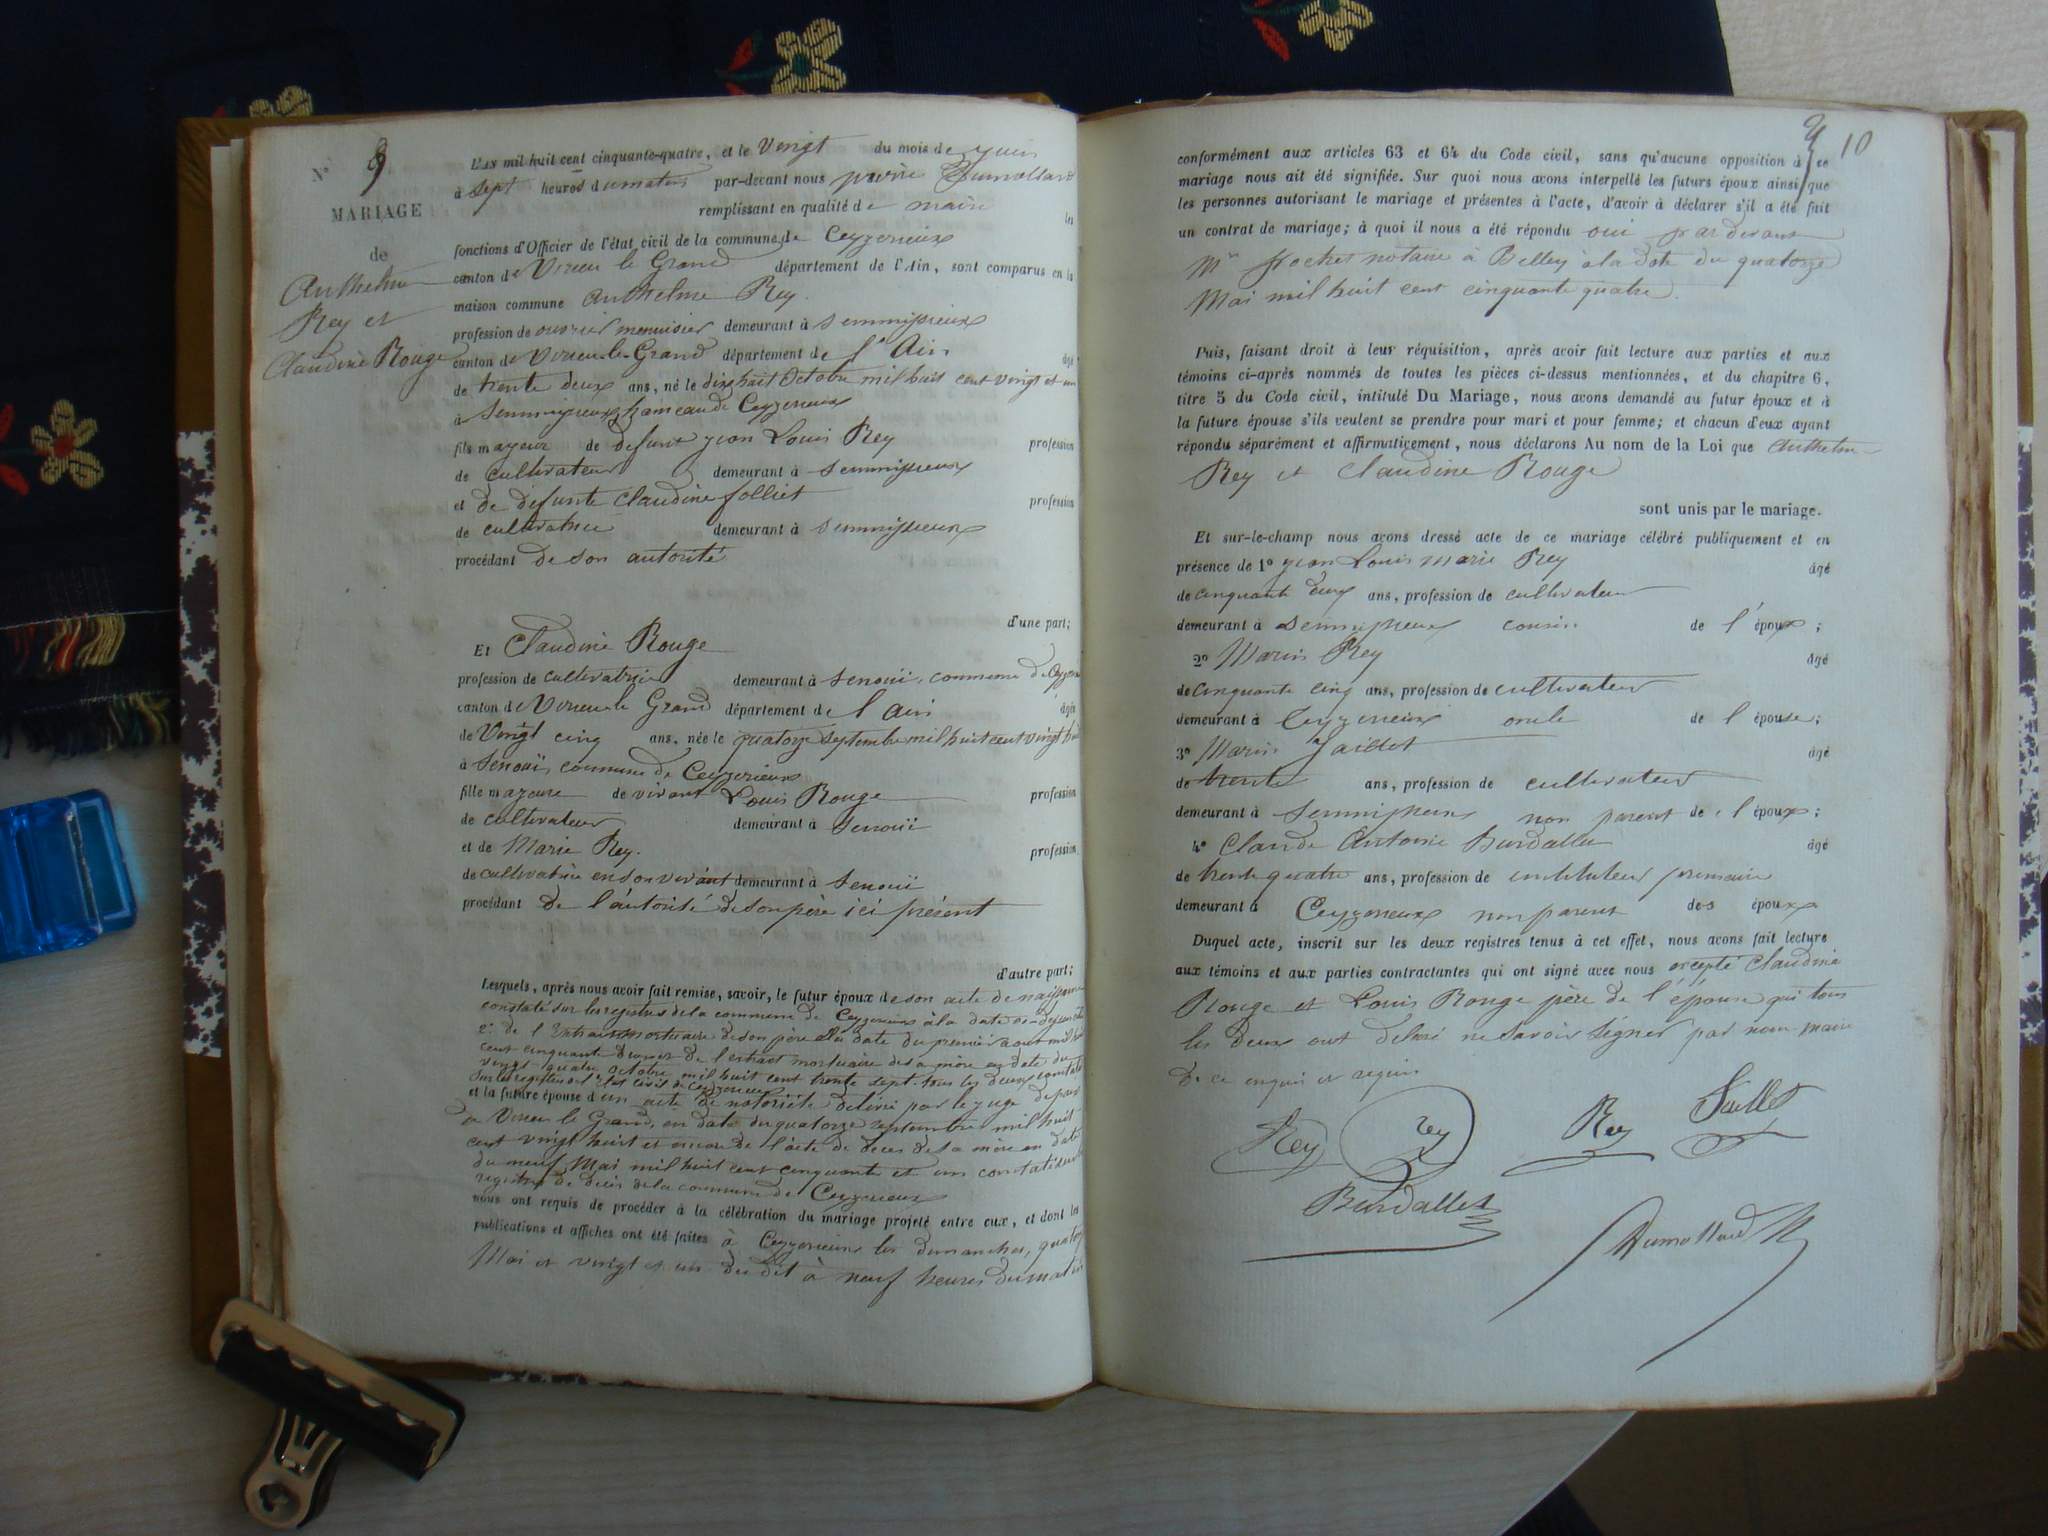 N° 9
MARIAGE
de
Anthelme
Rey et
Claudine Rouge
L'AN mil huit cent cinquante-quatre, et le Vingt du mois de juin
à sept heures du matin par-devant nous pierre Dumollard
remplissant en qualité de maire les
fonctions d'Officier de l'état civil de la commune de Ceyzerieux
canton de Virieu le Grand département de l'Ain, sont comparus en la
maison commune Anthelme Rey.
profession de ouvrier menuisier demeurant à semmisieux
canton de Virieu-le-Grand département de l'Ain âgé
de trente deux ans, né le dix huit Octobre mil huit cent vingt et un
à Semmisieux hameau de Ceyzerieux
fils mayeur de defunt jean Louis Rey profession
de cultivateur demeurant à semmisieux
et de defunte Claudine folliet profession
de cultivatrice demeurant à semmisieux
procédant de son autorité
d'une part;
Et Claudine Rouge
profession de cultivatrice demeurant à senoui, commune de Ceyzerieux
canton de Virieu le Grand département de l'ain âgée
de Vingt cinq ans, née le quatorze septembre mil huit cent vingt huit
à Senouï, commune de Ceyzerieux
fille mayeure de vivant Louis Rouge profession
de cultivateur demeurant à senouï
et de Marie Rey. profession
de cultivatrice en son vivant demeurant à senouï
procédant de l'autorité de son père ici présent
d'autre part;
Lesquels, après nous avoir fait remise, savoir, le futur époux de son acte de naissance
constaté sur les registres de la commune de Ceyzerieux à la date
2° de l'Extrait mortuaire de son père à la date du premier aout mil huit
cent cinquante de l'extrait mortuaire de sa mère en date du
vingt quatre octobre mil huit cent trente sept tous les deux constatés
sur les registres de l'état civil de Ceyzerieux
et la future épouse d'un acte de notoriété délivré par le juge de paix
de Virieu le Grand, en date du quatorze septembre mil huit
cent vingt huit et encore de l'acte de décès de sa mère en date
du neuf Mai mil huit cent cinquante et un constaté
registres de décès de la commune de Ceyzerieux
nous ont requis de procéder à la célébration du mariage projeté entre eux, et dont les
publications et affiches ont été faites à Ceyzerieux les dimanches, quatorze
Mai et vingt et un du dit à neuf heures du matin
10
conformément aux articles 63 et 64 du Code civil, sans qu'aucune opposition à ce
mariage nous ait été signifiée. Sur quoi nous avons interpellé les futurs époux ainsi que
les personnes autorisant le mariage et présentes à l'acte, d'avoir à déclarer s'il a été fait
un contrat de mariage; à quoi il nous a été répondu oui par devant
Me notaire à Belley à la date du quatorze
Mai mil huit cent cinquante quatre.
Puis, faisant droit à leur réquisition, après avoir fait lecture aux parties et aux
témoins ci-après nommés de toutes les pièces ci-dessus mentionnées, et du chapitre 6,
titre 5 du Code civil, intitulé Du Mariage, nous avons demandé au futur époux et à
la future épouse s'ils veulent se prendre pour mari et pour femme; et chacun d'eux ayant
répondu séparément et affirmativement, nous déclarons Au nom de la Loi que Anthelme
Rey et Claudine Rouge
sont unis par le mariage.
Et sur-le-champ nous avons dressé acte de ce mariage célébré publiquement et en
présence de 1° jean Louis marie Rey âgé
de cinquante deux ans, profession de cultivateur
demeurant à semmisieux cousin de l'époux;
2° Marin Rey âgé
de cinquante cinq ans, profession de cultivateur
demeurant à Ceyzerieux oncle de l'épouse;
3° Marin Jaillet âgé
de trente ans, profession de cultivateur
demeurant à Semmisieux non parent de l'époux;
4° Claude Antoine Burdallet âgé
de trente quatre ans, profession de instituteur primaire
demeurant à Ceyzerieux non parent des époux
Duquel acte, inscrit sur les deux registres tenus à cet effet, nous avons fait lecture
aux témoins et aux parties contractantes qui ont signé avec nous excepté Claudine
Rouge et Louis Rouge père de l'épouse qui tous
les deux ont déclaré ne savoir signer par nous maire
de ce enquis et requis
Rey Rey Rey Jaillet
Burdallet
Dumollard